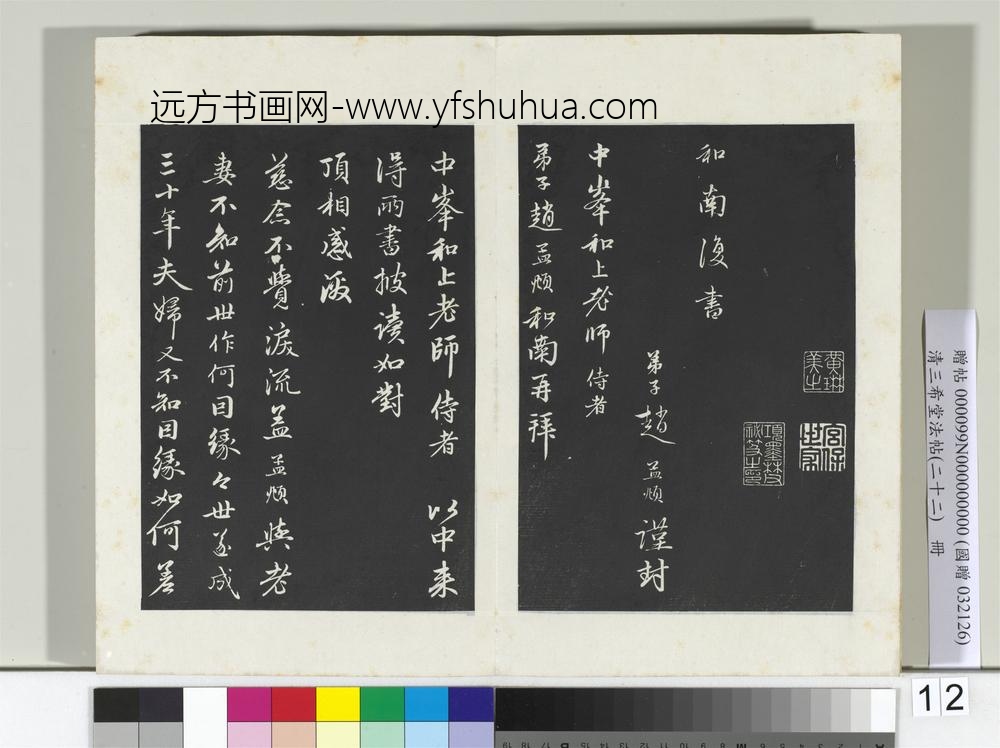 远方书画网-www.yfshuhua.com
和南復書
弟子趙孟頫謹封
中峯和上老師侍者
弟子趙孟頫和南再拜
黄琳美之
宮保世家
項墨林秘笈之印
中峯和上老師侍者 以中来
得兩書披讀如對
頂相感激
慈念不覺淚流盖孟頫與老
妻不知前世作何因緣今世遂成
三十年夫婦又不知因緣如何差
贈帖 000099N000000000 (國贈 032126)
清三希堂法帖(二十二) 冊
12